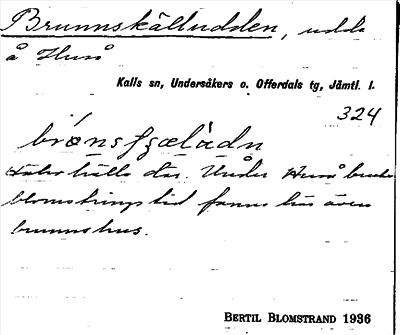 Brunnskälludden, udde
å Huså
Kalls sn, Undersåkers o. Offerdals tg, Jämtl. l.
324
brønsfjælådn
källa där. Under Huså bruks
blomstrings tid fanns här även
brunnshus.
BERTIL BLOMSTRAND 1936